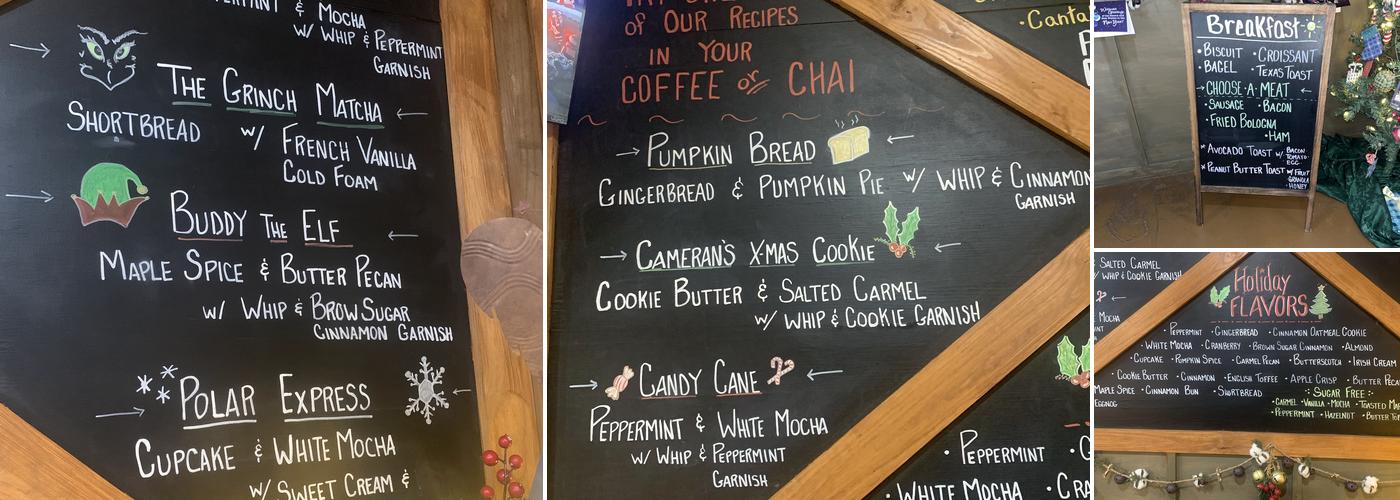 & MOCHA
W/ WHIP & PEPPERMINT
GARNISH
THE GRINCH MATCHA
SHORTBREAD W/ FRENCH VANILLA
COLD FOAM
BUDDY THE ELF
MAPLE SPICE & BUTTER PECAN
W/ WHIP & BROW SUGAR
CINNAMON GARNISH
POLAR EXPRESS
CUPCAKE & WHITE MOCHA
W/ SWEET CREAM &
of OUR RECIPES
IN YOUR
COFFEE or CHAI
PUMPKIN BREAD
GINGERBREAD & PUMPKIN PIE W/ WHIP & CINNAMON
GARNISH
CAMERAN'S X-MAS COOKIE
COOKIE BUTTER & SALTED CARMEL
W/ WHIP & COOKIE GARNISH
CANDY CANE
PEPPERMINT & WHITE MOCHA
W/ WHIP & PEPPERMINT
GARNISH
• PEPPERMINT
• WHITE MOCHA • CRA
• Canta
Breakfast
• BISCUIT • CROISSANT
• BAGEL • TEXAS TOAST
CHOOSE • A • MEAT
• SAUSAGE • BACON
• FRIED BOLOGNA
• HAM
* AVOCADO TOAST W/ BACON
TOMATO
EGG
* PEANUT BUTTER TOAST W/ FRUIT
GRANOLA
HONEY
SALTED CARMEL
WHIP & COOKIE GARNISH
MOCHA
Holiday
FLAVORS
• PEPPERMINT • GINGERBREAD • CINNAMON OATMEAL COOKIE
• WHITE MOCHA • CRANBERRY • BROWN SUGAR CINNAMON • ALMOND
• CUPCAKE • PUMPKIN SPICE • CARMEL PECAN • BUTTERSCOTCH • IRISH CREAM
• COOKIE BUTTER • CINNAMON • ENGLISH TOFFEE • APPLE CRISP • BUTTER PECA
MAPLE SPICE • CINNAMON BUN • SHORTBREAD
EGGNOG
SUGAR FREE:
• CARMEL • VANILLA • MOCHA • TOASTED MA
• PEPPERMINT • HAZELNUT • BUTTER